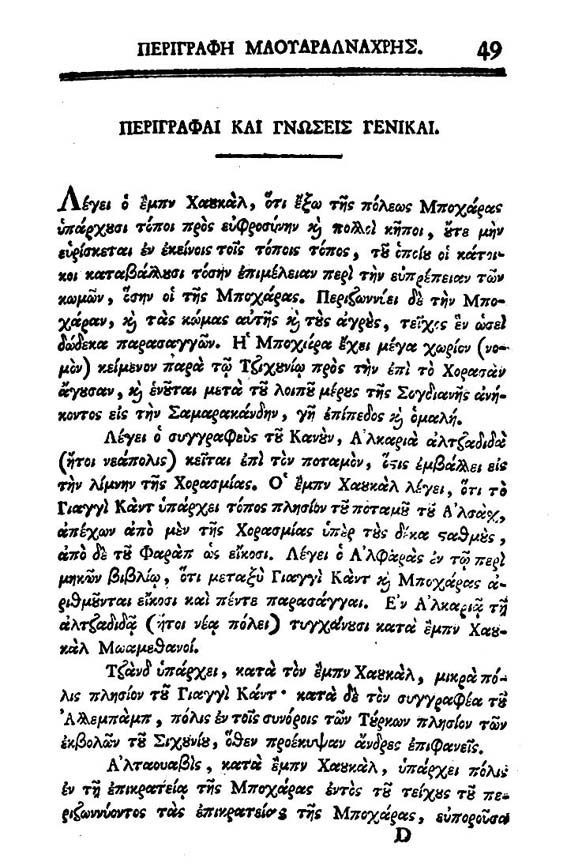 ΠΕΡΙΓΡΑΦΗ ΜΑΟΥΑΡΑΛΝΑΧΡΗΣ. 49
ΠΕΡΙΓΡΑΦΑΙ ΚΑΙ ΓΝΩΣΕΙΣ ΓΕΝΙΚΑΙ.
Λέγει ὁ ἔμπν Χαȣκὰλ, ὅτι ἔξω τῆς πόλεως Μποχάρας
ὑπάρχȣσι τόποι πρὸς εὐφροσύνην ϗ πολλοὶ κῆποι, ȣ̓́τε μὴν
εὑρίσκεται ἐν ἐκείνοις τοῖς τόποις τόπος, τȣ͂ ὁποίȣ οἱ κάτοι-
κοι καταβάλλȣσι τόσην ἐπιμέλειαν περὶ τὴν εὐπρέπειαν τῶν
κωμῶν, ὅσην οἱ τῆς Μποχάρας. Περιζωννύει δὲ τὴν Μπο-
χάραν, ϗ τὰς κώμας αὐτῆς ϗ τȣ̀ς ἀγρȣ̀ς, τεῖχος ἓν ὡσεὶ
δώδεκα παρασαγγῶν. Η῾ Μποχιάρα ἔχει μέγα χωρίον (νο-
μὸν) κείμενον παρὰ τῷ Τζιχȣνίῳ πρὸς τὴν ἐπὶ τὸ Χορασὰν
ἄγȣσαν, ϗ ἑνȣ͂ται μετὰ τȣ͂ λοιπȣ͂ μέρȣς τῆς Σογδιανῆς ἀνή-
κοντος εἰς τὴν Σαμαρακάνδην, γῆ ἐπίπεδος ϗ ὁμαλή.
Λέγει ὁ συγγραφεὺς τȣ͂ Κανȣ̀ν, Α᾿λκαριὰ ἀλτζαδιδὰ
(ἤτοι νεάπολις) κεῖται ἐπὶ τὸν ποταμὸν, ὅϛις ἐμβάλλει εἰς
τὴν λίμνην τῆς Χορασμίας. Ο῾ ἔμπν Χαȣκὰλ λέγει, ὅτι τὸ
Γιαγγὶ Κὰντ ὑπάρχει τόπος πλησίον τȣ͂ ποταμȣ͂ τȣ͂ Α᾿λσὰχ,
ἀπέχων ἀπὸ μὲν τῆς Χορασμίας ὑπὲρ τȣ̀ς δέκα ϛαθμȣ̀ς,
ἀπὸ δὲ τȣ͂ Φαρὰπ ὡς εἴκοσι. Λέγει ὁ Α᾿λφαρὰς ἐν τῷ περὶ
μηκῶν βιβλίῳ, ὅτι μεταξὺ Γιαγγὶ Κὰντ ϗ Μποχάρας ἀ-
ριθμȣ͂νται εἴκοσι καὶ πέντε παρασάγγαι. Ε᾿ν Α᾿λκαριᾷ τῇ
ἀλτζαδιδᾷ (ἤτοι νέᾳ πόλει) τυγχάνȣσι κατὰ ἔμπν Χαȣ-
κὰλ Μωαμεθανοί.
Τζὰνδ ὑπάρχει, κατὰ τὸν ἔμπν Χαȣκὰλ, μικρὰ πό-
λις πλησίον τȣ͂ Γιαγγὶ Κάντ· κατὰ δὲ τὸν συγγραφέα τȣ͂
Ἀλλεμπὰμπ, πόλις ἐν τοῖς συνόροις τῶν Τȣ́ρκων πλησίον τῶν
ἐκβολῶν τȣ͂ Σιχȣνίȣ, ὅθεν προέκυψαν ἄνδρες ἐπιφανεῖς.
Α᾿λταουαβὶς, κατὰ ἔμπν Χαȣκὰλ, ὑπάρχει πόλις
ἐν τῇ ἐπικρατείᾳ τῆς Μποχάρας ἐντὸς τȣ͂ τείχȣς τȣ͂ πε-
ριζωννύοντος τὰς ἐπικρατείας τῆς Μποχάρας, εὐποροῦσα
D